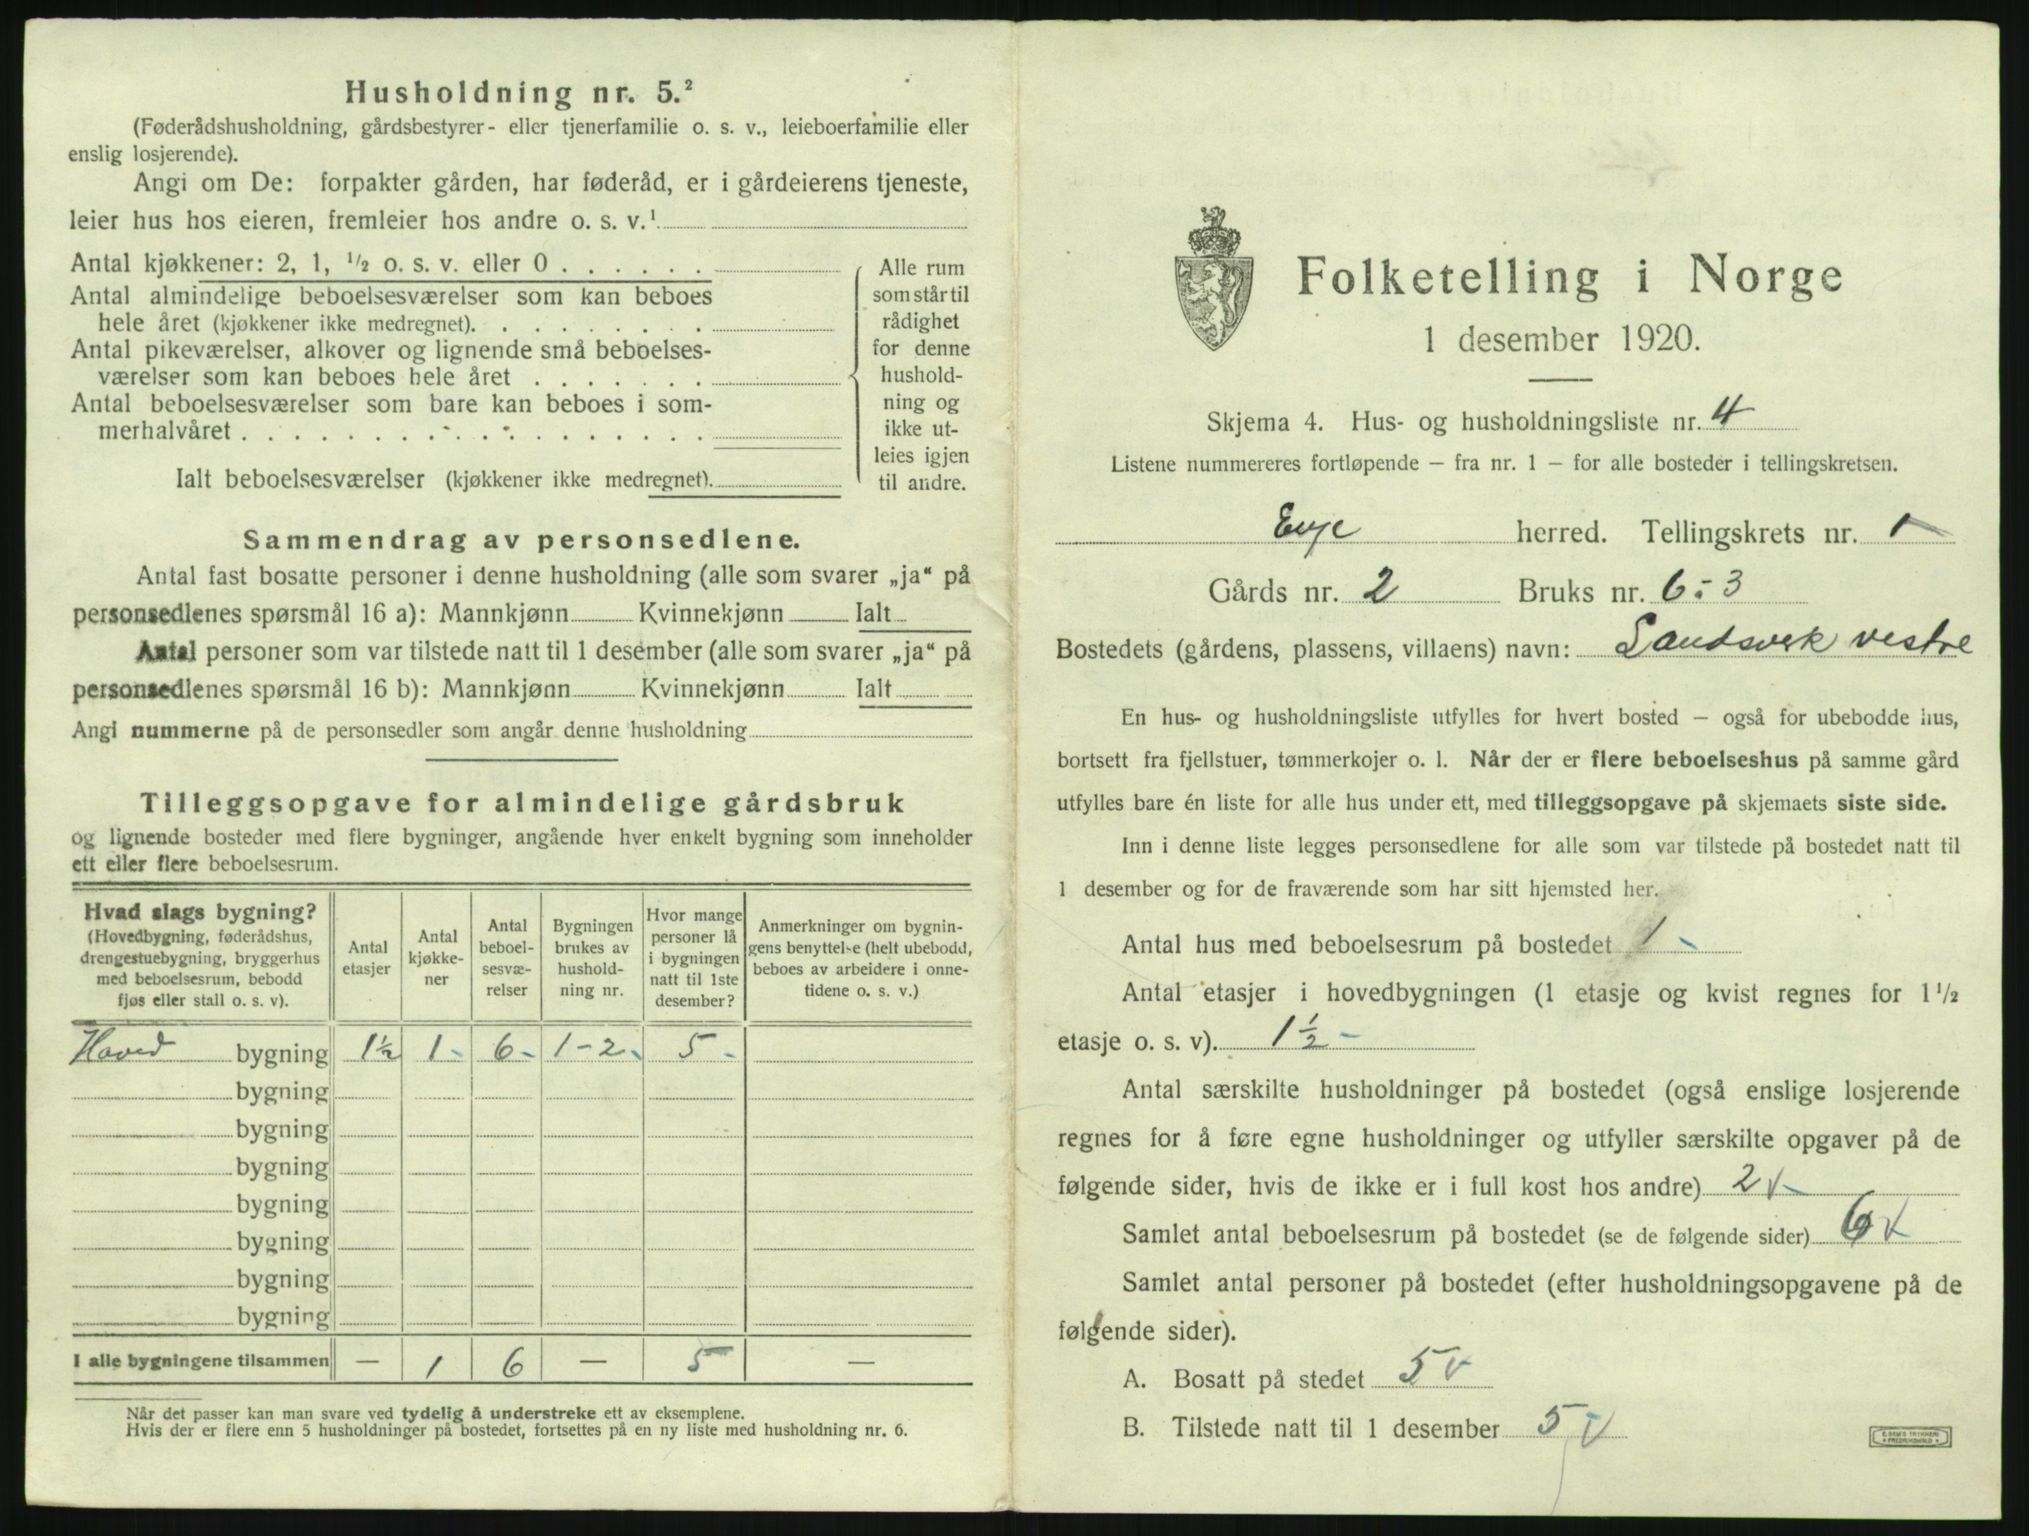 Husholdning nr. 5.²
(Føderådshusholdning, gårdsbestyrer- eller tjenerfamilie o. s. v., leieboerfamilie eller
enslig losjerende).
Angi om De: forpakter gården, har føderåd, er i gårdeierens tjeneste,
leier hus hos eieren, fremleier hos andre o. s. v.¹
Antal kjøkkener: 2, 1, ½ o. s. v. eller 0
Antal almindelige beboelsesværelser som kan beboes
hele året (kjøkkener ikke medregnet).
Antal pikeværelser, alkover og lignende små beboelses-
værelser som kan beboes hele året
Antal beboelsesværelser som bare kan beboes i som-
merhalvåret
Ialt beboelsesværelser (kjøkkener ikke medregnet).
Alle rum
som står til
rådighet
for denne
hushold-
ning og
ikke ut-
leies igjen
til andre.
Sammendrag av personsedlene.
Antal fast bosatte personer i denne husholdning (alle som svarer „ja“ på
personsedlenes spørsmål 16 a): Mannkjønn Kvinnekjønn Ialt
Antal personer som var tilstede natt til 1 desember (alle som svarer „ja“ på
personsedlenes spørsmål 16 b): Mannkjønn Kvinnekjønn Ialt
Angi nummerne på de personsedler som angår denne husholdning
Tilleggsopgave for almindelige gårdsbruk
og lignende bosteder med flere bygninger, angående hver enkelt bygning som inneholder
ett eller flere beboelsesrum.
Hvad slags bygning?
(Hovedbygning, føderådshus,
drengestuebygning, bryggerhus
med beboelsesrum, bebodd
fjøs eller stall o. s. v).
Antal
etasjer
Antal
kjøkke-
ner
Antal
beboel-
sesvæ-
relser
Bygningen
brukes av
hushold-
ning nr.
Hvor mange
personer lå
i bygningen
natt til 1ste
desember?
Anmerkninger om bygnin-
gens benyttelse (helt ubebodd,
beboes av arbeidere i onne-
tidene o. s. v.)
Hoved bygning 1½ 1 - 6 - 1-2 - 5 -
bygning
bygning
bygning
bygning
bygning
bygning
bygning
I alle bygningene tilsammen — 1 6 — 5 —
Når det passer kan man svare ved tydelig å understreke ett av eksemplene.
Hvis der er flere enn 5 husholdninger på bostedet, fortsettes på en ny liste med husholdning nr. 6.
Folketelling i Norge
1 desember 1920.
Skjema 4. Hus- og husholdningsliste nr. 4
Listene nummereres fortløpende – fra nr. 1 – for alle bosteder i tellingskretsen.
Evje herred. Tellingskrets nr. 1
Gårds nr. 2 Bruks nr. 6 : 3
Bostedets (gårdens, plassens, villaens) navn: Landsverk vestre
En hus- og husholdningsliste utfylles for hvert bosted – også for ubebodde hus,
bortsett fra fjellstuer, tømmerkojer o. l. Når der er flere beboelseshus på samme gård
utfylles bare én liste for alle hus under ett, med tilleggsopgave på skjemaets siste side.
Inn i denne liste legges personsedlene for alle som var tilstede på bostedet natt til
1 desember og for de fraværende som har sitt hjemsted her.
Antal hus med beboelsesrum på bostedet 1 -
Antal etasjer i hovedbygningen (1 etasje og kvist regnes for 1½
etasje o. s. v). 1½ -
Antal særskilte husholdninger på bostedet (også enslige losjerende
regnes for å føre egne husholdninger og utfyller særskilte opgaver på de
følgende sider, hvis de ikke er i full kost hos andre) 2
Samlet antal beboelsesrum på bostedet (se de følgende sider) 6
Samlet antal personer på bostedet (efter husholdningsopgavene på de
følgende sider).
A. Bosatt på stedet 5
B. Tilstede natt til 1 desember 5